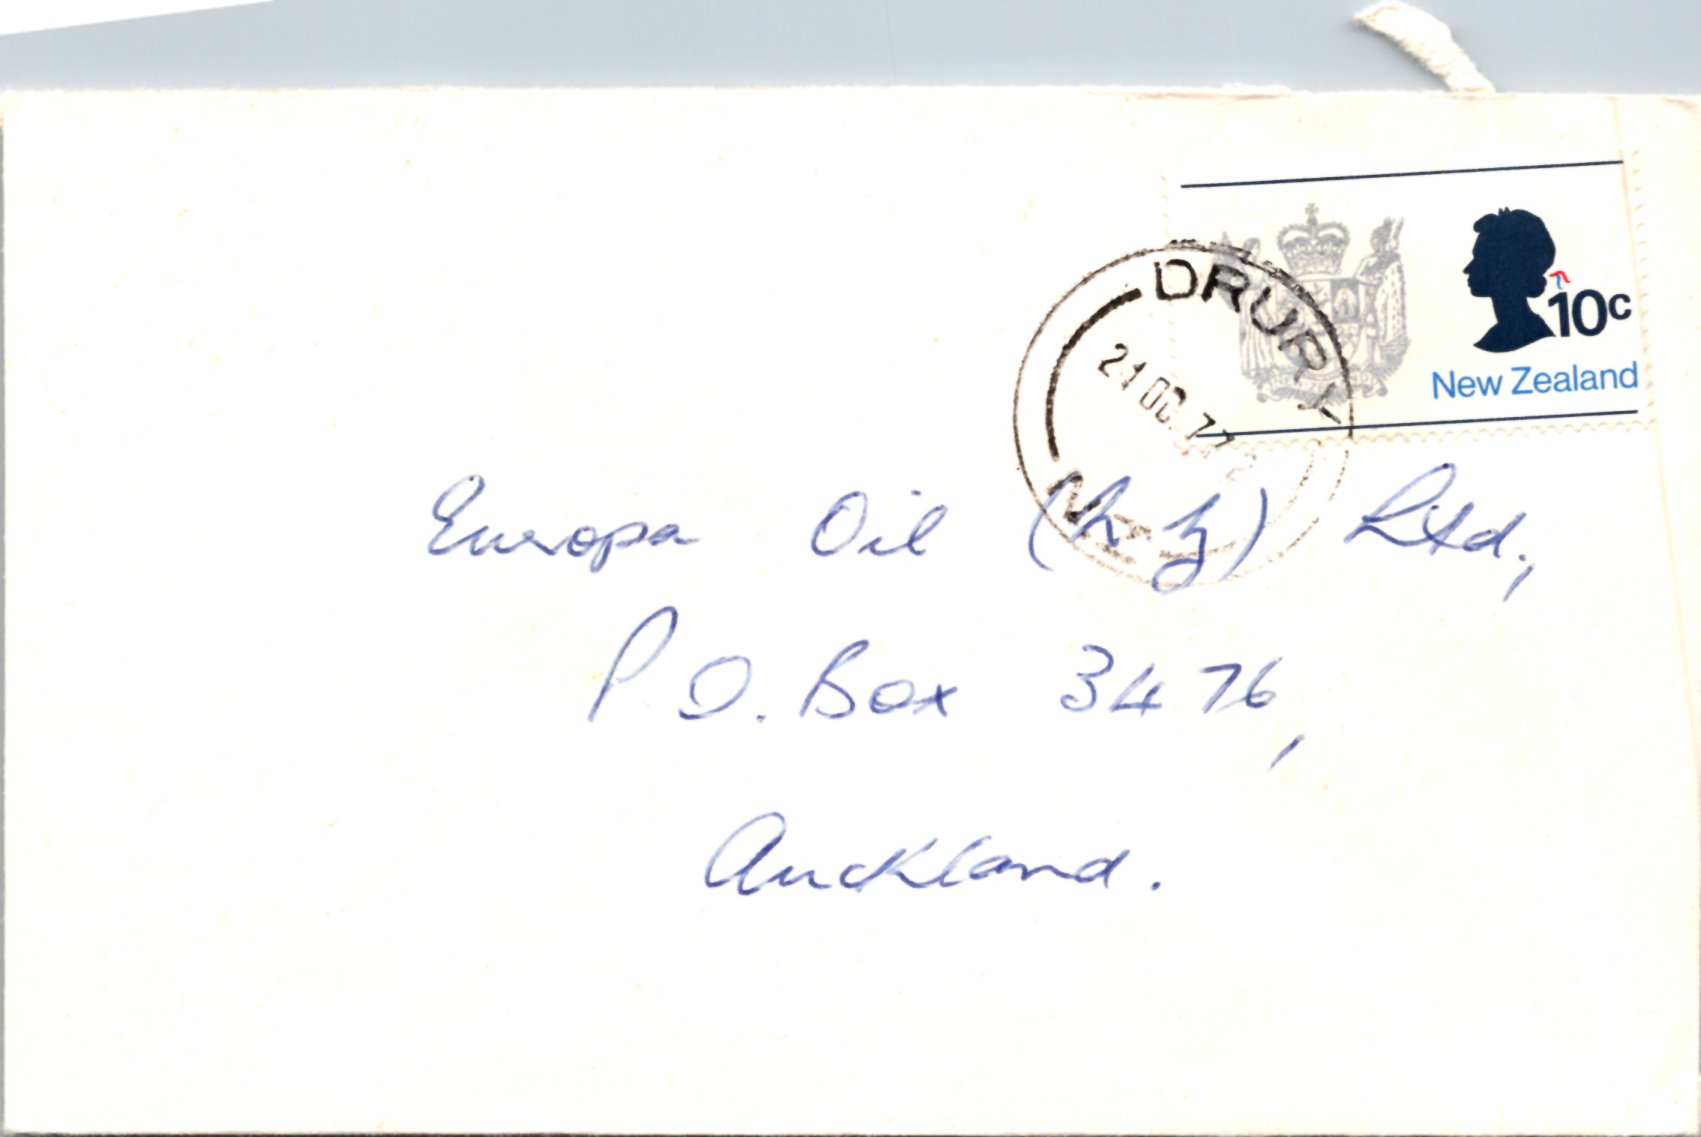 10c
New Zealand
DRURY
21 OC 77
N.Z.
Europa Oil (N.Z) Ltd.,
P.O. Box 3476,
Auckland.